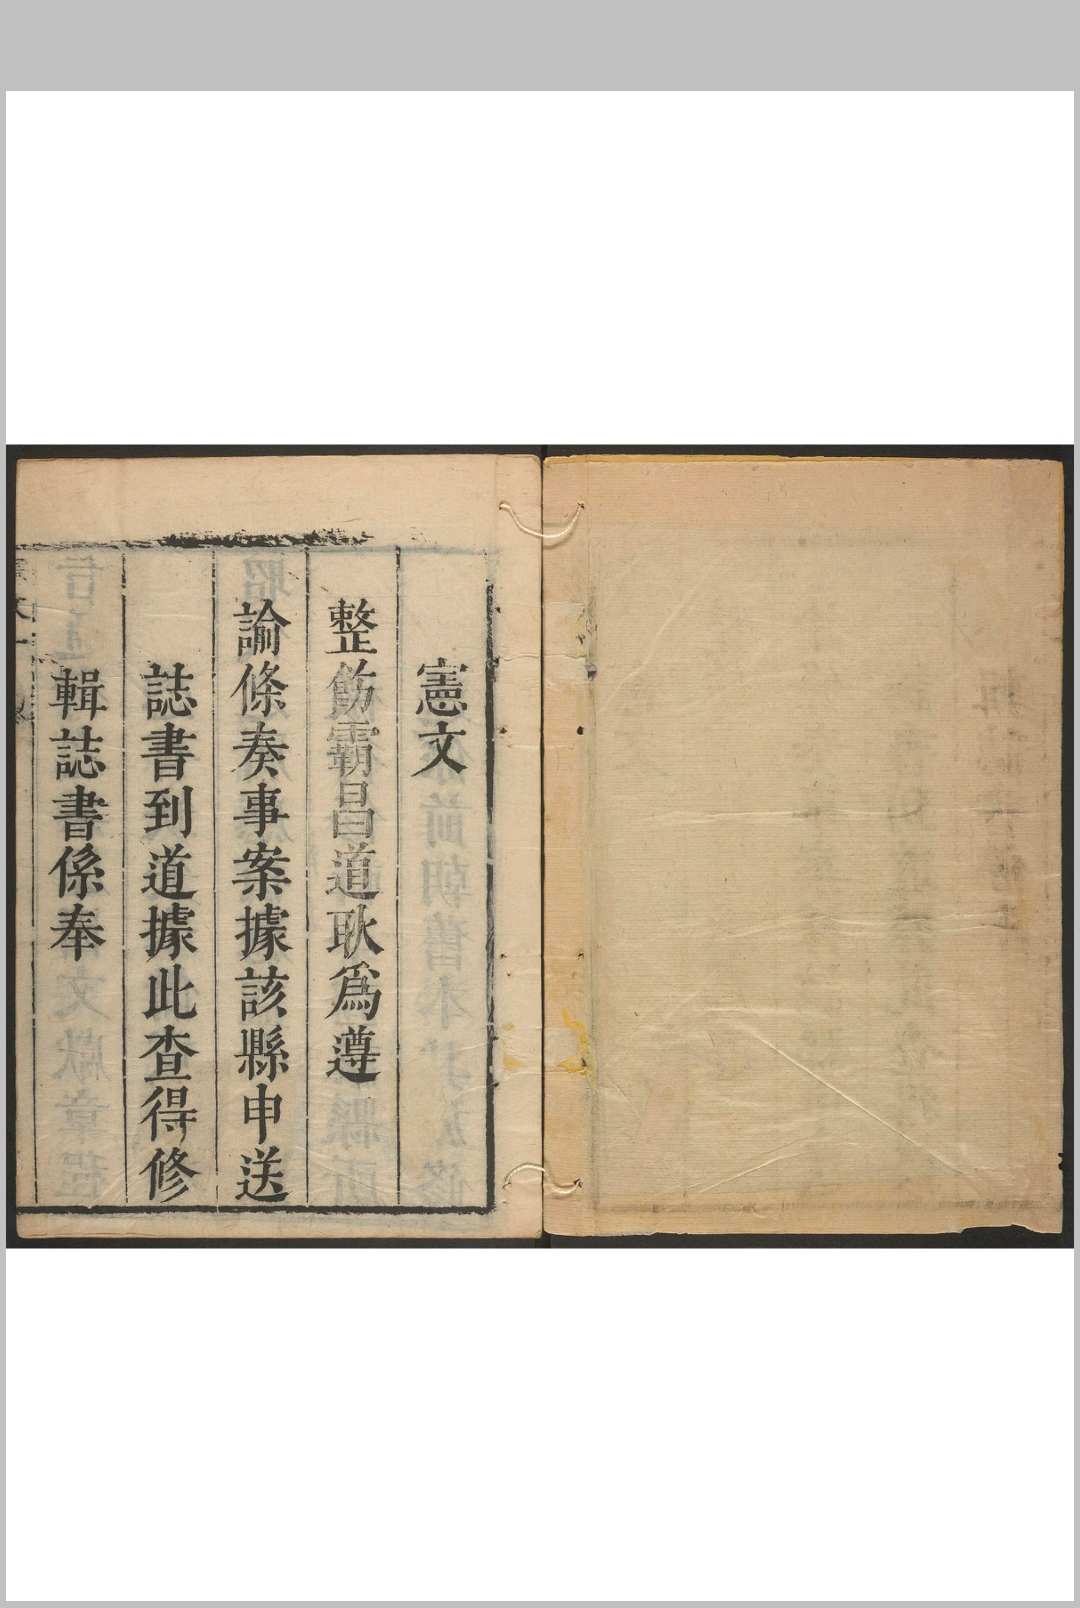 憲文
整飭霸昌道耿為遵
諭條奏事案據該縣申送
誌書到道據此查得修
輯誌書係奉